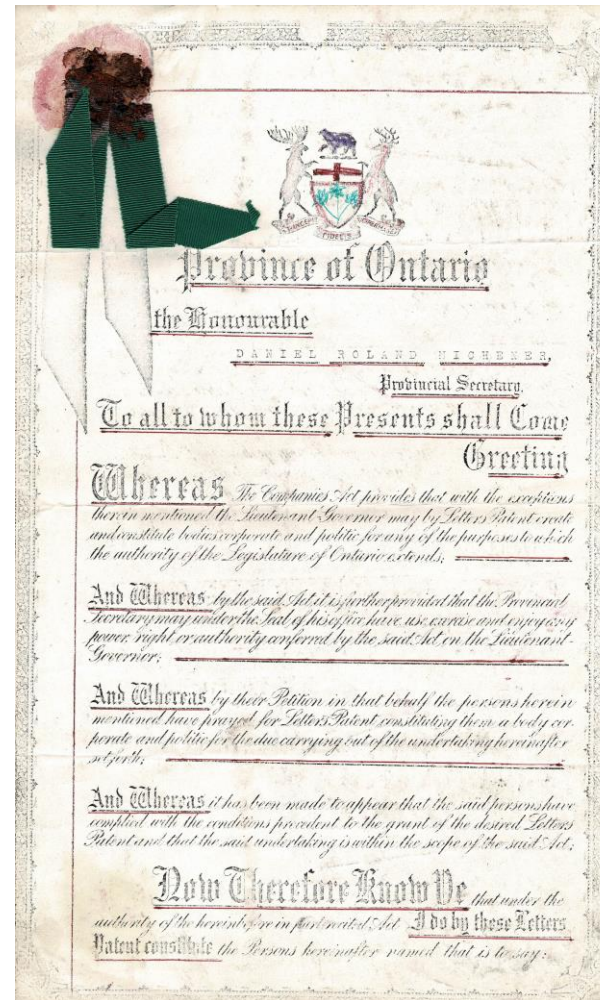 Province of Ontario
the Honourable
DANIEL ROLAND MICHENER,
Provincial Secretary,
To all to whom these Presents shall Come
Greeting
Whereas The Companies Act provides that with the exceptions
therein mentioned the Lieutenant Governor may by Letters Patent create
and constitute bodies corporate and politic for any of the purposes to which
the authority of the Legislature of Ontario extends;
And Whereas by the said Act it is further provided that the Provincial
Secretary may under the Seal of his office have use exercise and enjoy any
power right or authority conferred by the said Act on the Lieutenant
Governor;
And Whereas by their Petition in that behalf the persons herein
mentioned have prayed for Letters Patent constituting them a body cor
porate and politic for the due carrying out of the undertaking hereinafter
set forth;
And Whereas it has been made to appear that the said persons have
complied with the conditions precedent to the grant of the desired Letters
Patent and that the said undertaking is within the scope of the said Act;
Now Therefore Know Ye that under the
authority of the hereinbefore in part recited Act I do by these Letters
Patent constitute the Persons hereinafter named that is to say: